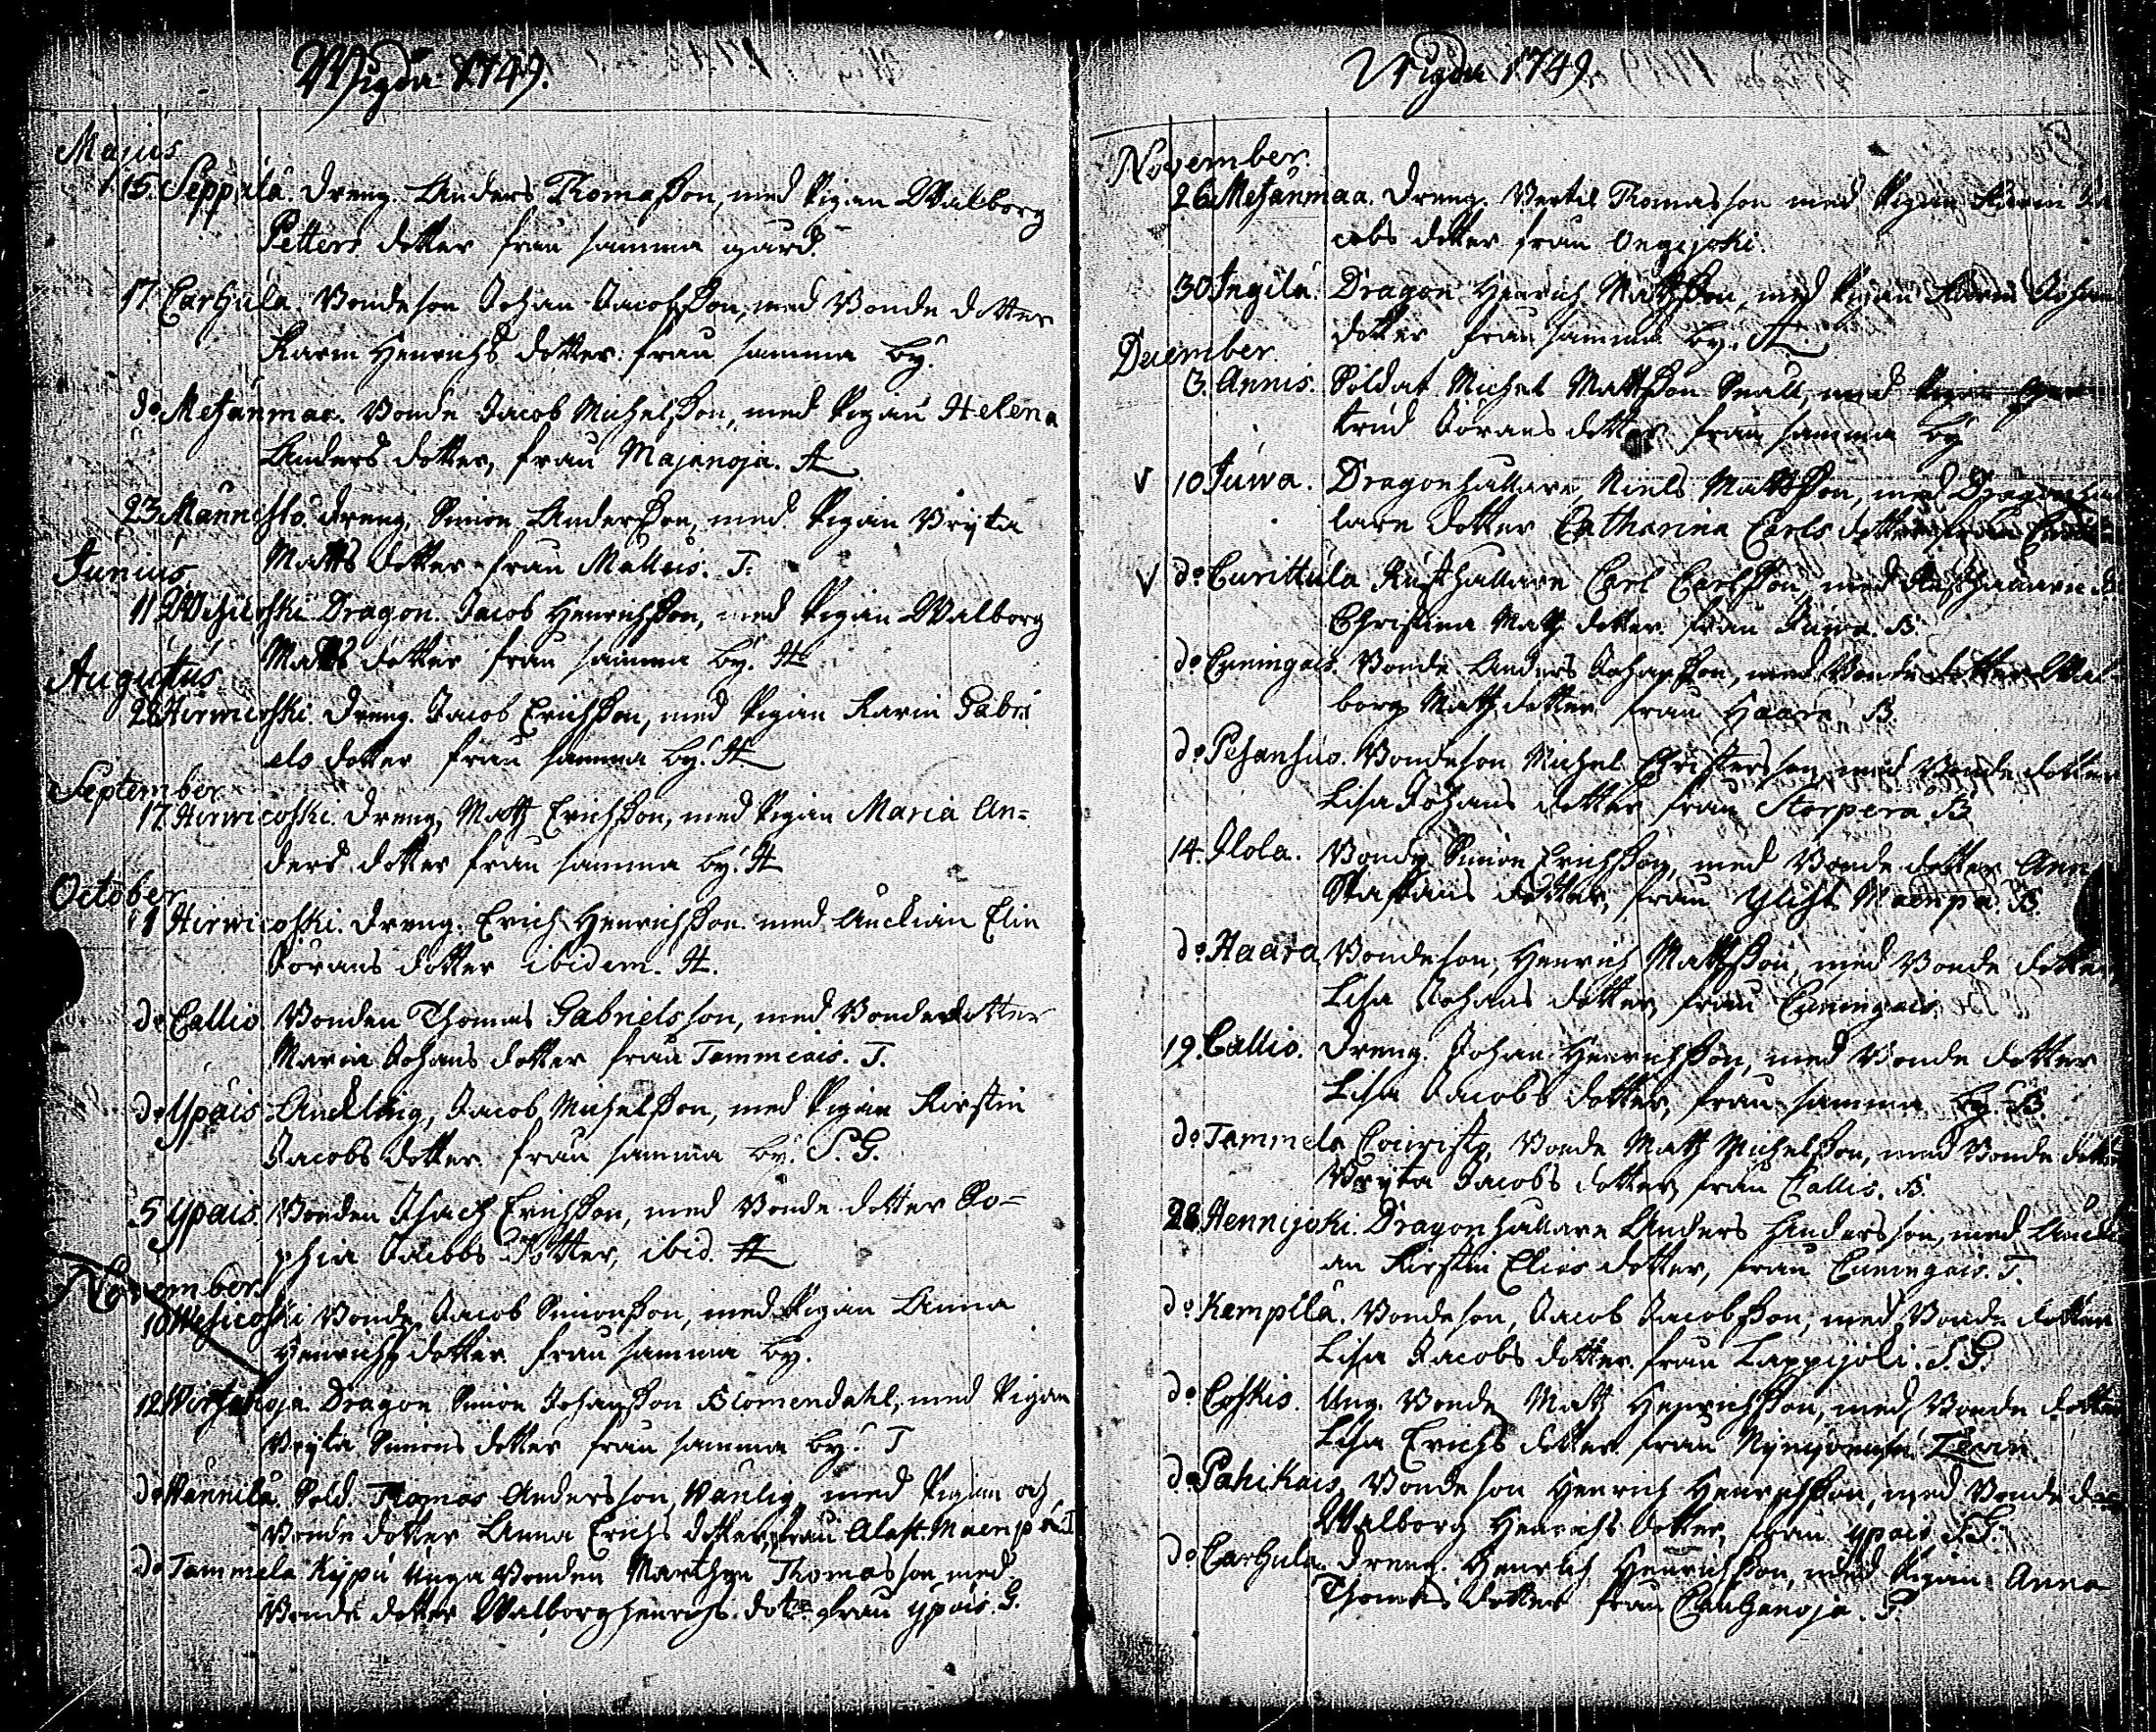 Wigde 1749.
Majus
15. Seppälä. Dreng. Anders Thomasson, med Pigan Walborg
Petters dotter fran samma gård.
17. Carhula. Bondeson Johan Jacobsson, med Bonde dotter
Karin Henrichs dotter: fran samma by.
do Metsänmaa. Bonde Jacob Michelsson, med Pigan Helena
Anders dotter, fran Majanoja. A
23. Mannisto. Dreng, Simon Andersson, med Pigan Bryta
Matts dotter fran Mälleis. T.
Junius.
11 Wesikoski. Dragon. Jacob Henrichsson, med Pigan Walborg
Matts dotter fran samma by. H
Augustus
28 Hirwicoski. Dreng. Jacob Erichsson, med Pigan Karin Gabri
els dotter fran samma by. H
September
17. Hirwicoski. Dreng, Matz Erichsson, med Pigan Maria An=
ders dotter fran samma by. H
October
1 Hirwicoski. Dreng. Erich Henrichsson med Änckian Elin
Jörans dotter ibidem. H.
do Callio. Bonden Thomas Gabrielsson, med Bonde dotter
Maria Johans dotter fran Tammiais. T.
do Ypäis Änckling, Jacob Michelsson, med Pigan Kirstin
Jacobs dotter fran samma by. S. G.
5 Ypäis. Bonden Isach Erichsson, med Bonde dotter So=
phia Jacobs dotter, ibid. H
November.
10 Wesicoski Bonde Jacob Simonsson, med Pigan Anna
Henrichs dotter fran samma by.
12. Wirtzanoja. Dragon Simon Johansson Blomendahl, med Pigan
Bryta Simons dotter fran samma by. T
do Wännilä. Sold. Thomas Andersson, Wänlig, med Pigan och
Bonde dotter Anna Erichs dotter, fran Alast. Maenpä. T
do Tammela Kypü unga Bonden Marthen Thomasson med
Bonde dotter Walborg Henrichs dotter fran Ypäis. G.
Wigde 1749.
November.
26. Metsänmaa. Dreng. Bertil Thomasson med Pigan Karin Ja
cobs dotter fran Ongijoki.
30 Ingilä. Dragon Henrich Matzsson, med Pigan Karin Johans
dotter fran samma by. H.
December.
3. Annis. Soldat Michel Mattsson Snäll, med Pigan Ger
trud Jörans dotter fran samma by
V 10 Juwa. Dragonhållare Niels Mattsson, med Dragonhål
lare dotter Catharina Carls dotter fran
V do Curittula Rusthållare Carl Carlsson med Rusthållare
Christina Matz dotter fran Juwa. B.
do Cuningais. Bonde Anders Johansson, med Bonde dotter Wal
borg Matz dotter fran Haara. B.
do Pesänsuo. Bondeson Michel Christersson, med Bonde dotter
Lisa Johans dotter fran Storpera. B
14. Ilola. Bonde Simon Erichsson, med Bonde dotter Ann
Staffans dotter, fran Ylist. Maenpä. B.
do Haara, Bondeson, Henrich Matzsson, med Bonde dotter
Lisa Johans dotter, fran Cuningais.
19. Callio. Dreng. Johan Henrichsson, med Bonde dotter
Lisa Jacobs dotter, fran samma by. B.
do Tammela Couristo, Bonde Matz Michelsson, med Bonde dotter
Bryta Jacobs dotter, fran Callio. B.
28. Hennijoki. Dragonhållare Anders Andersson, med Ancki
an Kirstin Elias dotter, fran Cuningais. T.
do Kämpilä. Bondeson, Jacob Jacobsson, med Bonde dotter
Lisa Jacobs dotter fran Lappijoki. S. G.
do Coskis. Ung. Bonde Matz Henrichsson, med Bonde dotter
Lisa Erichs dotter fran
do Pahikais, Bondeson Henrich Henrichsson, med Bonde dot
Walborg Henrichs dotter, fran Ypäis. S. G.
do Carhula. Dreng. Henrich Henrichsson, med Pigan Anna
Thomas dotter fran Cauhanoja. T.